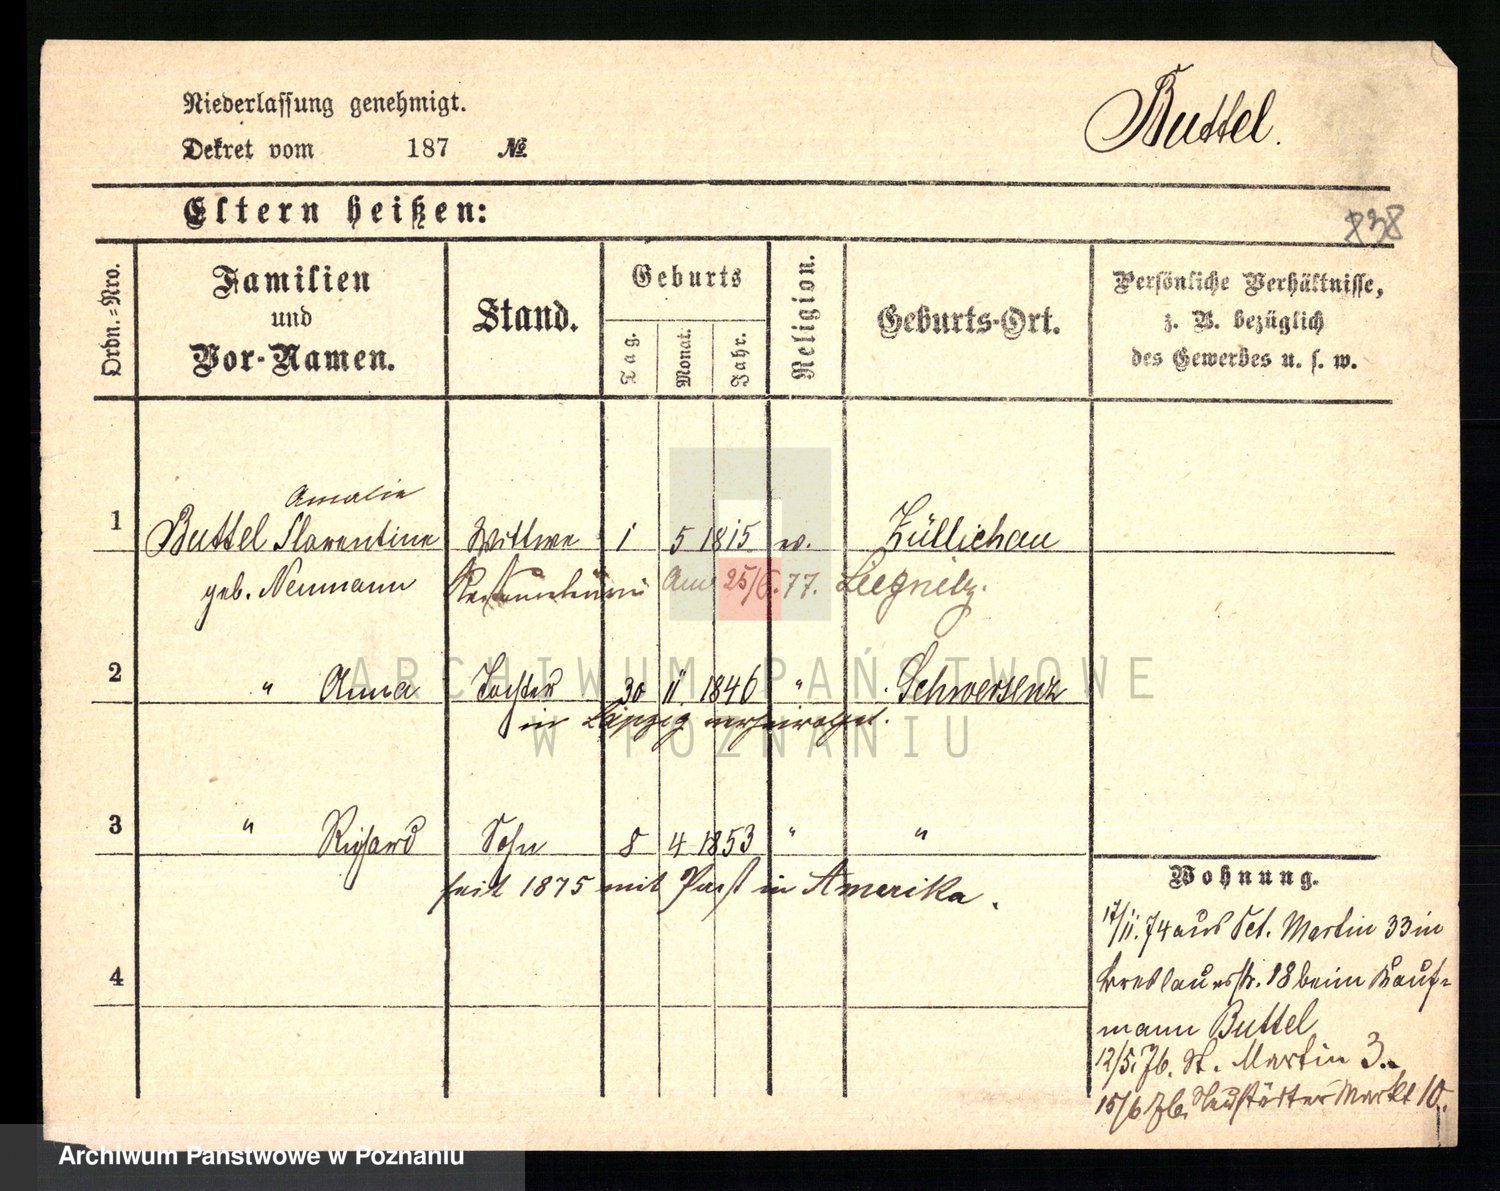 Niederlassung genehmigt.
Dekret vom 187 №
Buttel.
Eltern heißen:
838
Ordn.=Nro.
Familien
und
Vor-Namen.
Stand.
Geburts
Tag.
Monat.
Jahr.
Religion.
Geburts-Ort.
Persönliche Verhältnisse,
z. B. bezüglich
des Gewerbes u. s. w.
Amalie
1 Buttel Florentine Wittwe 1 5 1815 ev. Züllichau
geb. Neumann Am 25/6.77. Liegnitz.
2 " Anna Tochter 30 11. 1846 " Schwersenz
in Leipzig verheirathet.
3 " Richard Sohn 8 4 1853 " "
seit 1875 mit Paß in Amerika.
4
Wohnung.
17/11.74 aus Sct. Martin 33 in
Breslauerstr. 18 beim Kauf=
mann Buttel
12/5.76. St. Martin 3.
15/6 76. Neustädter Markt 10.
ARCHIWUM PAŃSTWOWE
W POZNANIU
Archiwum Państwowe w Poznaniu